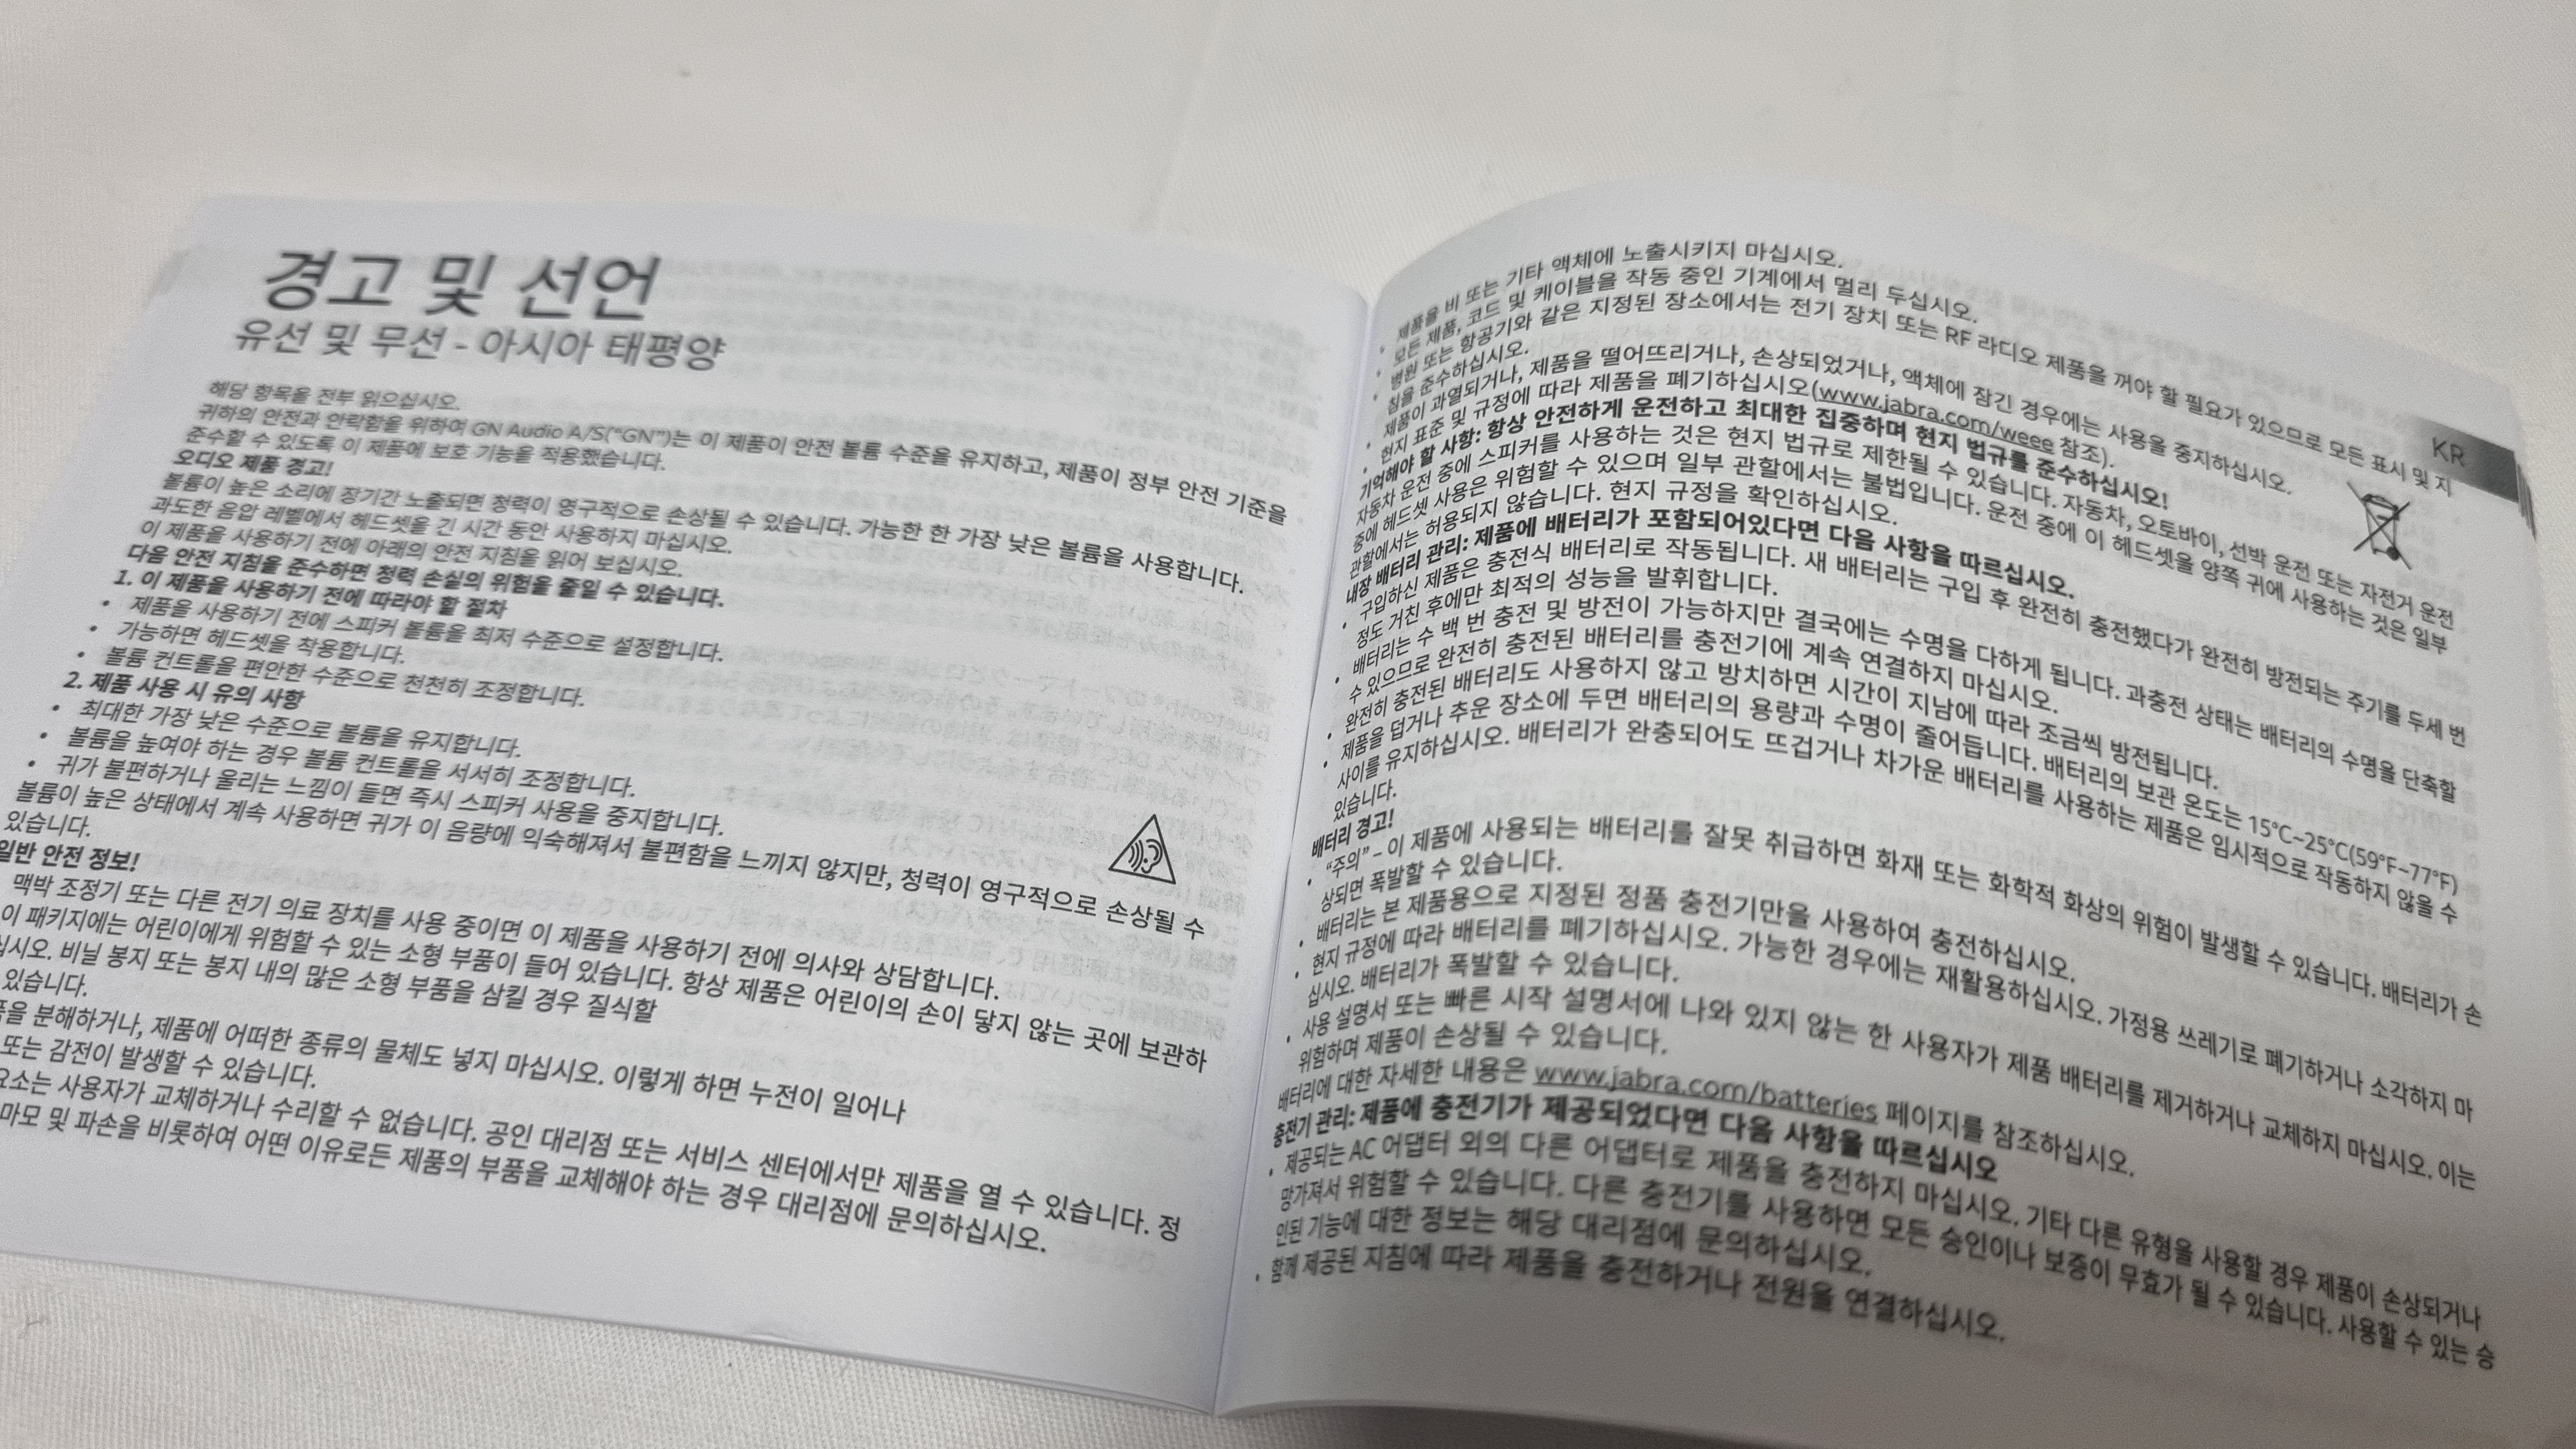 경고 및 선언
유선 및 무선 - 아시아 태평양
해당 항목을 전부 읽으십시오.
귀하의 안전과 안락함을 위하여 GN Audio A/S("GN")는 이 제품이 안전 볼륨 수준을 유지하고, 제품이 정부 안전 기준을
준수할 수 있도록 이 제품에 보호 기능을 적용했습니다.
오디오 제품 경고!
볼륨이 높은 소리에 장기간 노출되면 청력이 영구적으로 손상될 수 있습니다. 가능한 한 가장 낮은 볼륨을 사용합니다.
과도한 음압 레벨에서 헤드셋을 긴 시간 동안 사용하지 마십시오.
이 제품을 사용하기 전에 아래의 안전 지침을 읽어 보십시오.
다음 안전 지침을 준수하면 청력 손실의 위험을 줄일 수 있습니다.
1. 이 제품을 사용하기 전에 따라야 할 절차
• 제품을 사용하기 전에 스피커 볼륨을 최저 수준으로 설정합니다.
• 가능하면 헤드셋을 착용합니다.
• 볼륨 컨트롤을 편안한 수준으로 천천히 조정합니다.
2. 제품 사용 시 유의 사항
• 최대한 가장 낮은 수준으로 볼륨을 유지합니다.
• 볼륨을 높여야 하는 경우 볼륨 컨트롤을 서서히 조정합니다.
• 귀가 불편하거나 울리는 느낌이 들면 즉시 스피커 사용을 중지합니다.
볼륨이 높은 상태에서 계속 사용하면 귀가 이 음량에 익숙해져서 불편함을 느끼지 않지만, 청력이 영구적으로 손상될 수
있습니다.
일반 안전 정보!
맥박 조정기 또는 다른 전기 의료 장치를 사용 중이면 이 제품을 사용하기 전에 의사와 상담합니다.
이 패키지에는 어린이에게 위험할 수 있는 소형 부품이 들어 있습니다. 항상 제품은 어린이의 손이 닿지 않는 곳에 보관하
십시오. 비닐 봉지 또는 봉지 내의 많은 소형 부품을 삼킬 경우 질식할
있습니다.
을 분해하거나, 제품에 어떠한 종류의 물체도 넣지 마십시오. 이렇게 하면 누전이 일어나
또는 감전이 발생할 수 있습니다.
요소는 사용자가 교체하거나 수리할 수 없습니다. 공인 대리점 또는 서비스 센터에서만 제품을 열 수 있습니다. 정
마모 및 파손을 비롯하여 어떤 이유로든 제품의 부품을 교체해야 하는 경우 대리점에 문의하십시오.
KR
• 제품을 비 또는 기타 액체에 노출시키지 마십시오.
• 모든 제품, 코드 및 케이블을 작동 중인 기계에서 멀리 두십시오.
• 병원 또는 항공기와 같은 지정된 장소에서는 전기 장치 또는 RF 라디오 제품을 꺼야 할 필요가 있으므로 모든 표시 및 지
침을 준수하십시오.
• 제품이 과열되거나, 제품을 떨어뜨리거나, 손상되었거나, 액체에 잠긴 경우에는 사용을 중지하십시오.
• 현지 표준 및 규정에 따라 제품을 폐기하십시오(www.jabra.com/weee 참조).
기억해야 할 사항: 항상 안전하게 운전하고 최대한 집중하며 현지 법규를 준수하십시오!
자동차 운전 중에 스피커를 사용하는 것은 현지 법규로 제한될 수 있습니다. 자동차, 오토바이, 선박 운전 또는 자전거 운전
중에 헤드셋 사용은 위험할 수 있으며 일부 관할에서는 불법입니다. 운전 중에 이 헤드셋을 양쪽 귀에 사용하는 것은 일부
관할에서는 허용되지 않습니다. 현지 규정을 확인하십시오.
내장 배터리 관리: 제품에 배터리가 포함되어있다면 다음 사항을 따르십시오.
• 구입하신 제품은 충전식 배터리로 작동됩니다. 새 배터리는 구입 후 완전히 충전했다가 완전히 방전되는 주기를 두세 번
정도 거친 후에만 최적의 성능을 발휘합니다.
• 배터리는 수 백 번 충전 및 방전이 가능하지만 결국에는 수명을 다하게 됩니다. 과충전 상태는 배터리의 수명을 단축할
수 있으므로 완전히 충전된 배터리를 충전기에 계속 연결하지 마십시오.
• 완전히 충전된 배터리도 사용하지 않고 방치하면 시간이 지남에 따라 조금씩 방전됩니다.
• 제품을 덥거나 추운 장소에 두면 배터리의 용량과 수명이 줄어듭니다. 배터리의 보관 온도는 15°C~25°C(59°F~77°F)
사이를 유지하십시오. 배터리가 완충되어도 뜨겁거나 차가운 배터리를 사용하는 제품은 임시적으로 작동하지 않을 수
있습니다.
배터리 경고!
• "주의" – 이 제품에 사용되는 배터리를 잘못 취급하면 화재 또는 화학적 화상의 위험이 발생할 수 있습니다. 배터리가 손
상되면 폭발할 수 있습니다.
• 배터리는 본 제품용으로 지정된 정품 충전기만을 사용하여 충전하십시오.
• 현지 규정에 따라 배터리를 폐기하십시오. 가능한 경우에는 재활용하십시오. 가정용 쓰레기로 폐기하거나 소각하지 마
십시오. 배터리가 폭발할 수 있습니다.
• 사용 설명서 또는 빠른 시작 설명서에 나와 있지 않는 한 사용자가 제품 배터리를 제거하거나 교체하지 마십시오. 이는
위험하며 제품이 손상될 수 있습니다.
배터리에 대한 자세한 내용은 www.jabra.com/batteries 페이지를 참조하십시오.
충전기 관리: 제품에 충전기가 제공되었다면 다음 사항을 따르십시오
• 제공되는 AC 어댑터 외의 다른 어댑터로 제품을 충전하지 마십시오. 기타 다른 유형을 사용할 경우 제품이 손상되거나
망가져서 위험할 수 있습니다. 다른 충전기를 사용하면 모든 승인이나 보증이 무효가 될 수 있습니다. 사용할 수 있는 승
인된 기능에 대한 정보는 해당 대리점에 문의하십시오.
• 함께 제공된 지침에 따라 제품을 충전하거나 전원을 연결하십시오.